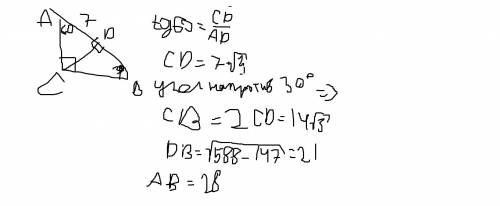 A 7
60 D
C B
tg60 = CD/AD
CD = 7√3
угол напротив 30° ⇒
CB = 2CD = 14√3
DB = √588 − 147 = 21
AB = 28